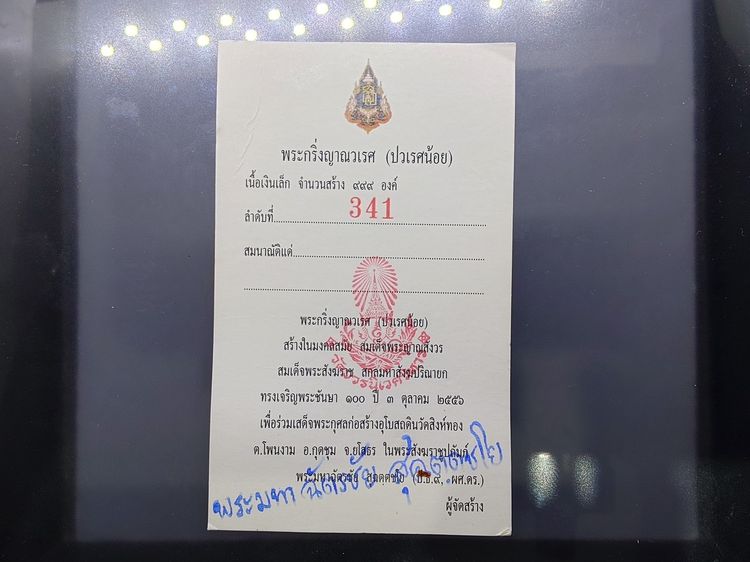 พระกริ่งญาณวเรศ (ปวเรศน้อย)
เนื้อเงินเล็ก จำนวนสร้าง ๙๙๙ องค์
ลำดับที่ 341
สมนาณัติแด่
พระกริ่งญาณวเรศ (ปวเรศน้อย)
สร้างในมงคลสมัย สมเด็จพระญาณสังวร
สมเด็จพระสังฆราช สกลมหาสังฆปริณายก
ทรงเจริญพระชันษา ๑๐๐ ปี ๓ ตุลาคม ๒๕๕๖
เพื่อร่วมเสด็จพระกุศลก่อสร้างอุโบสถดินวัดสิงห์ทอง
ต.โพนงาม อ.กุดชุม จ.ยโสธร ในพระสังฆราชูปถัมภ์
พระมหาฉัตรชัย สุฉตฺตชโย (ป.ธ.๙, ผศ.ดร.)
ผู้จัดสร้าง
วัดบวรนิเวศวิหาร
พระมหาฉัตรชัย สุฉตฺตชโย